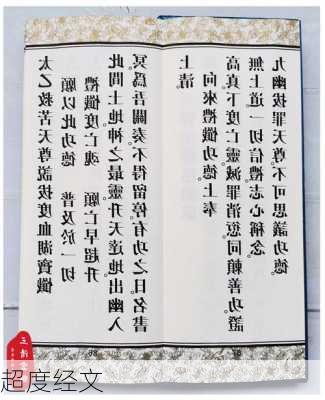 太乙救苦天尊説拔度血湖寶懺
願以此功德 普及於一切
禮懺度亡魂 願亡早超升
此間土地。神之最靈。升天達地。出幽入
冥。爲吾關奏。不得留停。有功之日。名書
上清。
向來禮懺功德。上奉
高真。下度亡靈。滅罪消愆。同賴善功。證
無上道。一切信禮。志心稱念。
九幽拔罪天尊。不可思議功德。
超度经文